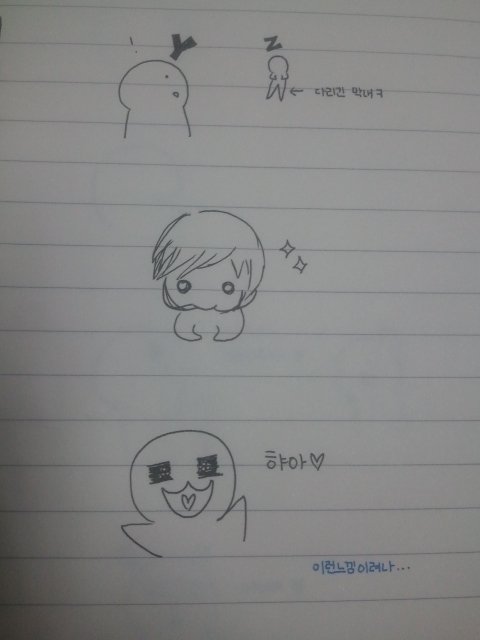 ! Y
Z
← 다리긴 막내ㅋ
햐아♡
이런느낌이려나...